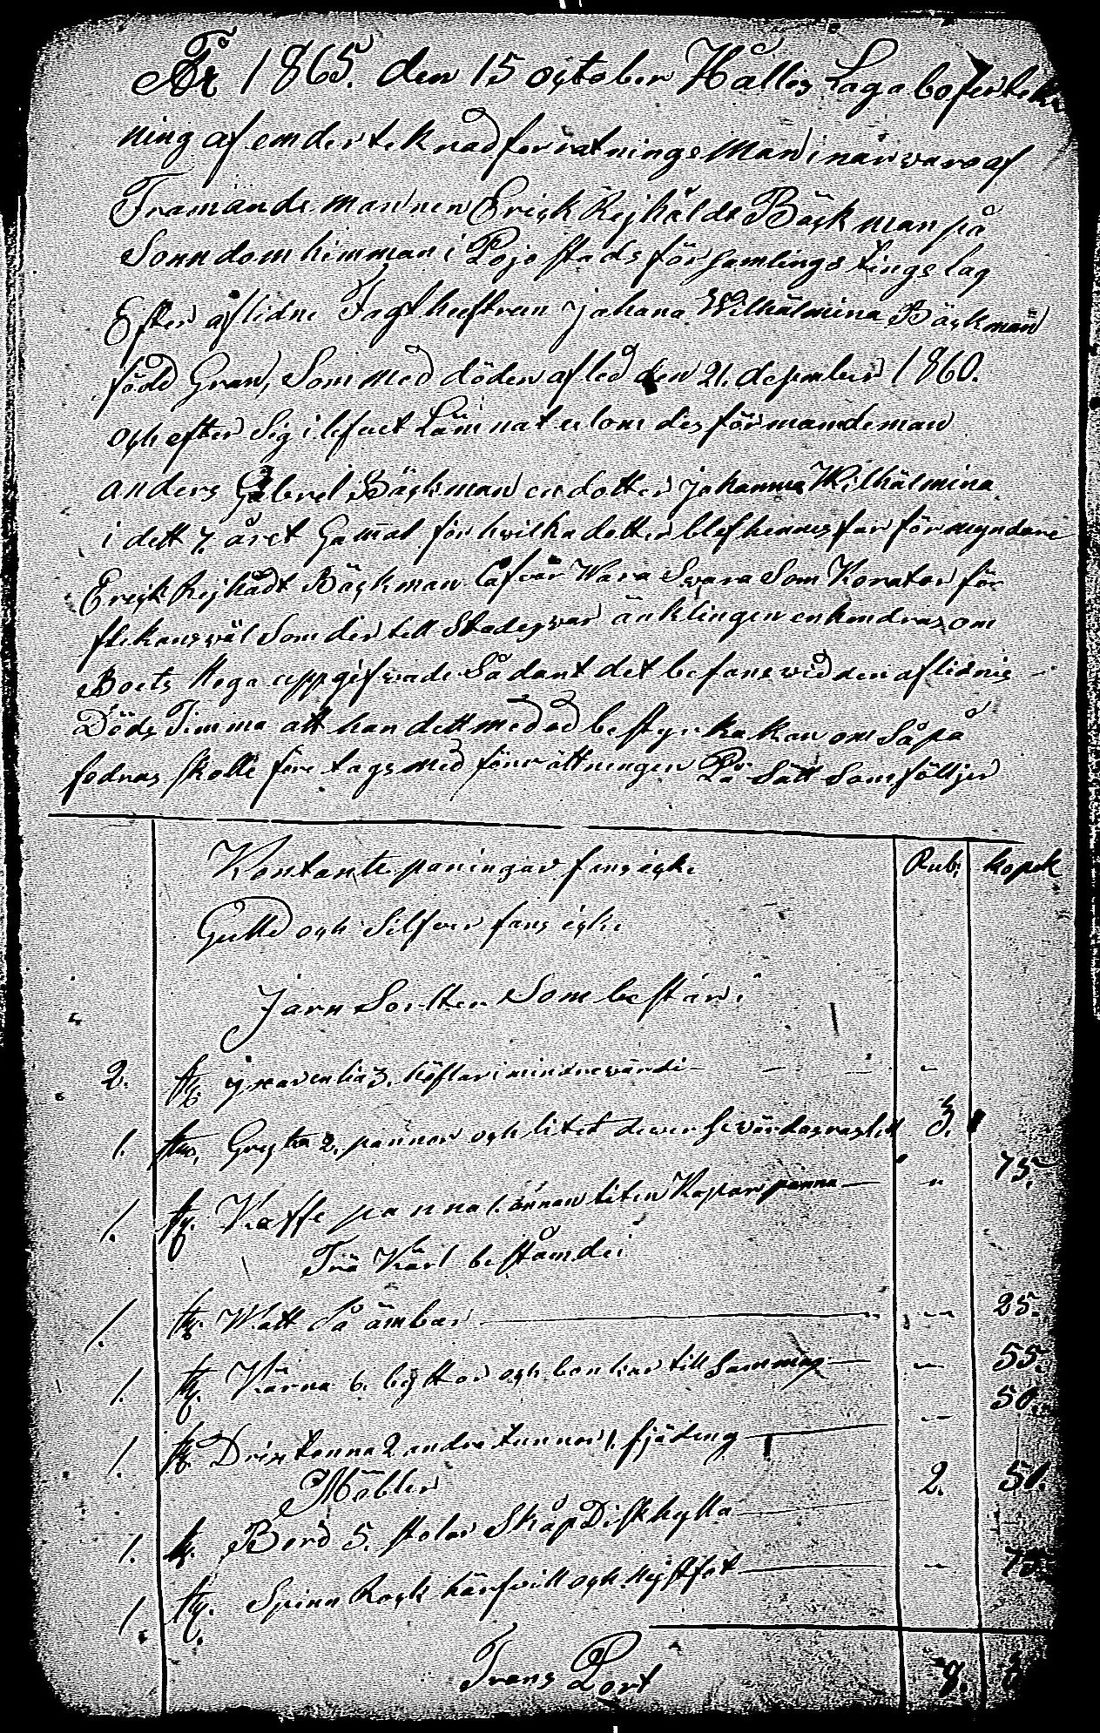 År 1865. den 15 october Hålles Laga boperteck
ning af undertecknad förrätnings Man i närvaro af
Framände mannen Erick Rejhåldt Bäckman på
Sonndom himman i Pojo stads församlings tingslag
Efter aflidne Johana Wilhälmina Bäckman
född Gran, Som med döden afled den 21. december 1860.
och efter Sig i lifvet Lämnat
anders Gabrel Bäckman en dotter johanna Wilhälmina
i dett 7. året Gamal för hvilka dotter blef hennes far förmyndare
Erick Rejhådt Bäckman Wara Svara Som Korator för
Som der till Städes var änklingen
Boets uppgifvade Sådant det befans wid den aflidnes
Döds Timma att han dett med ed bestyrka kan om Så på
fodras skolle företags med förrättningen På Sätt Som följer
Kontante peningar fans icke Rub: Kopek
Gulld och Silfver fans icke
Järn Sorlter Som består i
2. st. yxar en lia 3. höflar i mindre värde - - - -
1. st. Gryta 2. pannor och litet 3.
1. st. Kaffe panna 1. annan liten Kopar panna — " 75.
Trä Kärl beståmde i
1. st. Watt Så ämbar — 25.
1. st. Kärna 6. byttor och bunkar till Sammas — 55.
1. st. Drixtonna 2 andra tunnor 1. fjäding — 50.
Möbler 2. 50.
1. st. Bord 5. stolar Skåp Diskhylla —
1. st. Spinn Rock härfvill och — 75.
Trans Port 8.